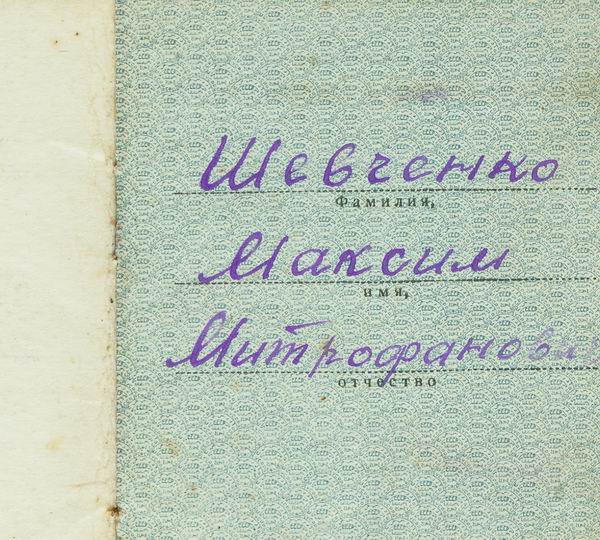 Шевченко
Фамилия,
Максим
имя,
Митрофанович
отчество